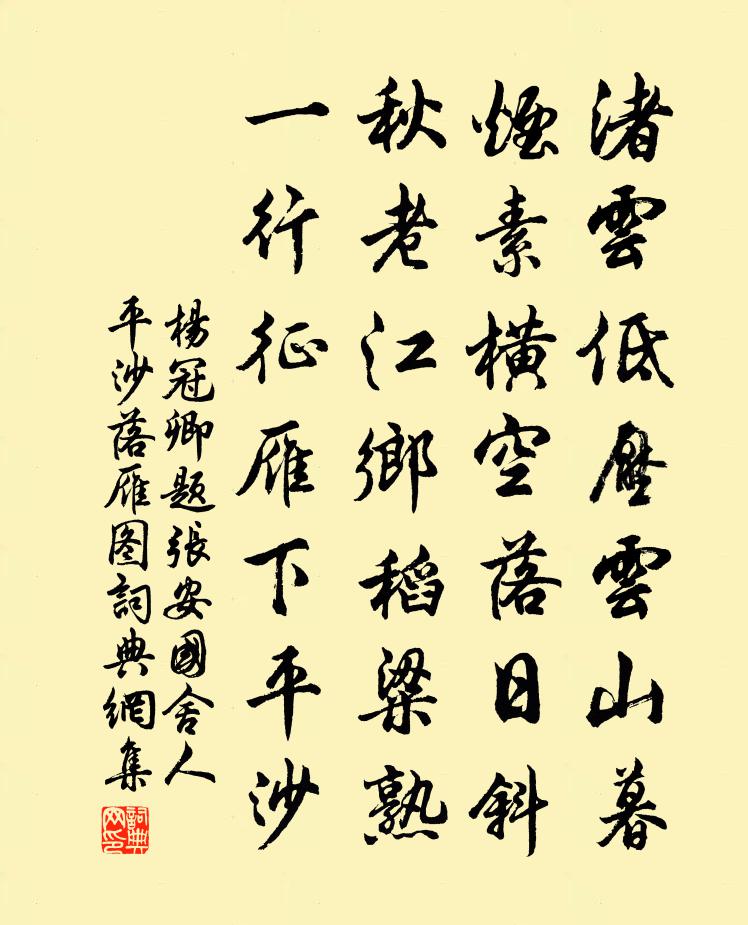 渚雲低壓雲山暮
煙素橫空落日斜
秋老江鄉稻粱熟
一行征雁下平沙
楊冠卿題張安國舍人
平沙落雁图詞典網集
詞典网印